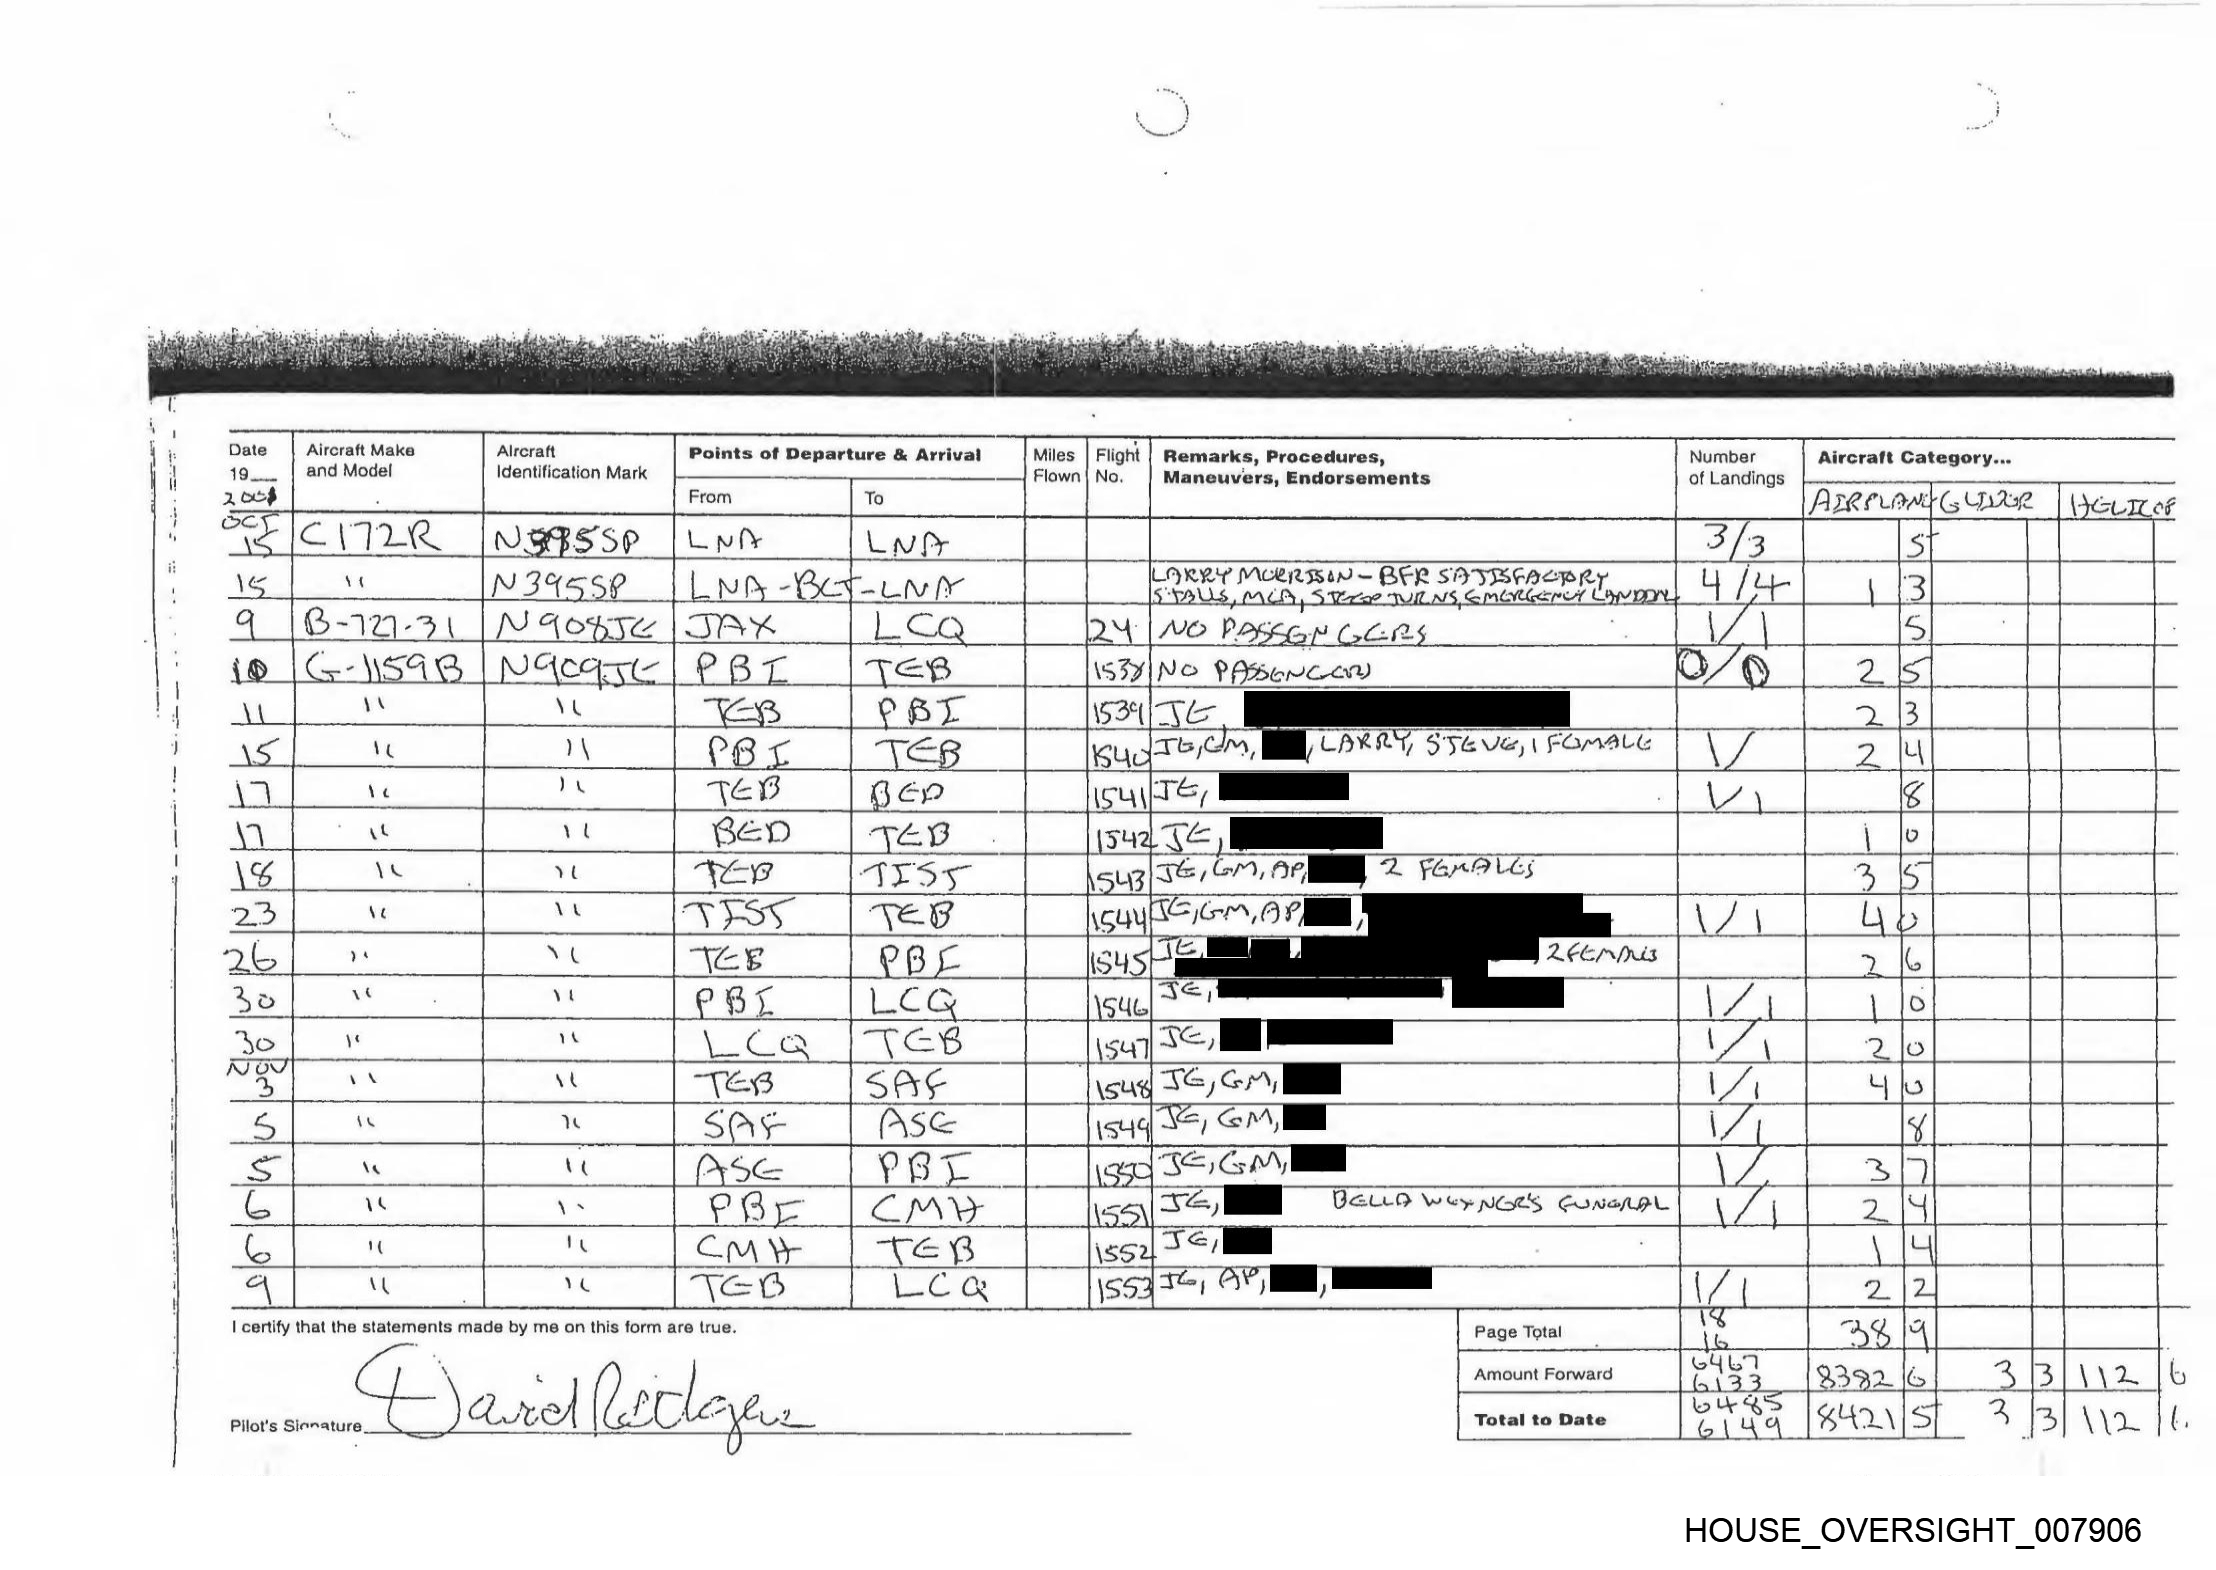 Date Aircraft Make Aircraft Points of Departure & Arrival Miles Flight Remarks, Procedures, Number Aircraft Category...
19__ and Model Identification Mark Flown No. Maneuvers, Endorsements of Landings
2001 From To AIRPLANE GLIDER HELICOP
OCT
15 C172R N395SP LNA LNA 3/3 5
15 " N395SP LNA-BCT-LNA LARRY MORRISON - BFR SATISFACTORY 4/4 1 3
STALLS, MCA, STEEP TURNS, EMERGENCY LANDING
9 B-727-31 N908JE JAX LCQ 24 NO PASSENGERS 1/1 5
10 G-1159B N909JE PBI TEB 1538 NO PASSENGERS 0/0 2 5
11 " " TEB PBI 1539 JE, 2 3
15 " " PBI TEB 1540 JE, GM, , LARRY, STEVE, 1 FEMALE 1/ 2 4
17 " " TEB BED 1541 JE, 1/1 8
17 " " BED TEB 1542 JE, 1 0
18 " " TEB TIST 1543 JE, GM, AP, , 2 FEMALES 3 5
23 " " TIST TEB 1544 JE, GM, AP, , 1/1 4 0
26 " " TEB PBI 1545 JE, , , 2 FEMALES 2 6
30 " " PBI LCQ 1546 JE, 1/1 1 0
30 " " LCQ TEB 1547 JE, 1/1 2 0
NOV
3 " " TEB SAF 1548 JE, GM, 1/1 4 0
5 " " SAF ASE 1549 JE, GM, 1/1 8
5 " " ASE PBI 1550 JE, GM, 1/ 3 7
6 " " PBI CMH 1551 JE, BELLA WEXNER'S FUNERAL 1/1 2 4
6 " " CMH TEB 1552 JE, 1 4
9 " " TEB LCQ 1553 JE, AP, , 1/1 2 2
I certify that the statements made by me on this form are true. Page Total 18 16 38 9
Amount Forward 6467 6133 8382 6 3 3 112 6
Pilot's Signature David Rodgers Total to Date 6485 6149 8421 5 3 3 112 6
HOUSE_OVERSIGHT_007906